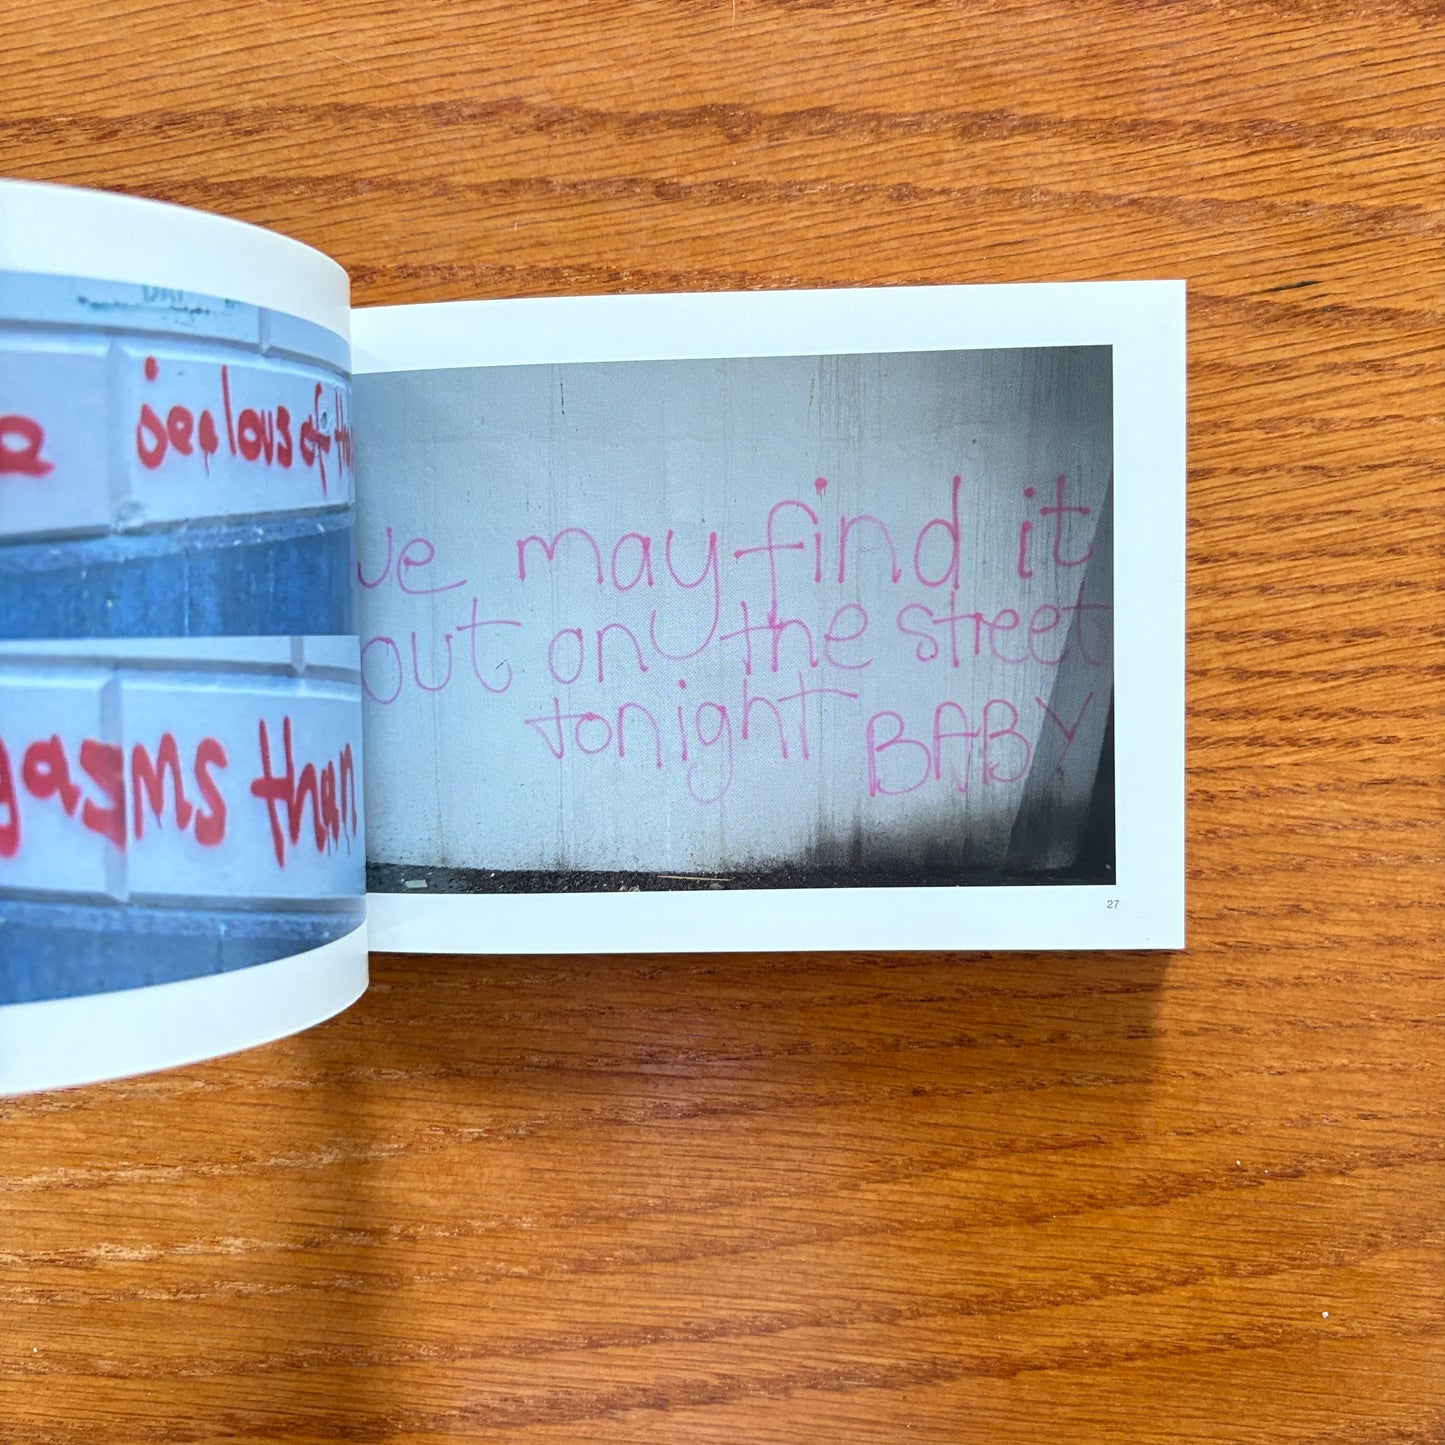 jealous of the
gasms than
we may find it
out on the street
tonight BABY
27